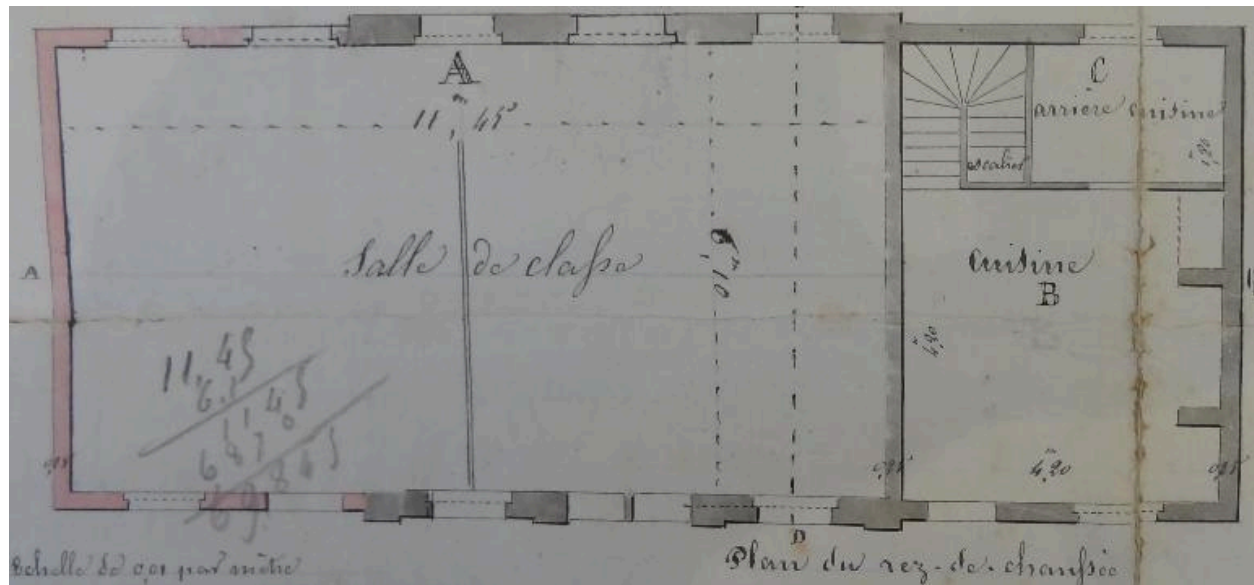 A
C
11,45
arrière cuisine
1,20
escalier
A
Salle de classe
6,10
cuisine
B
4,20
11,45
6.1
1 1 4 5
6 8 7 0
69.845
0,25
0,25
4,20
0,25
D
Echelle de 0,01 par mètre
Plan du rez-de-chaussée